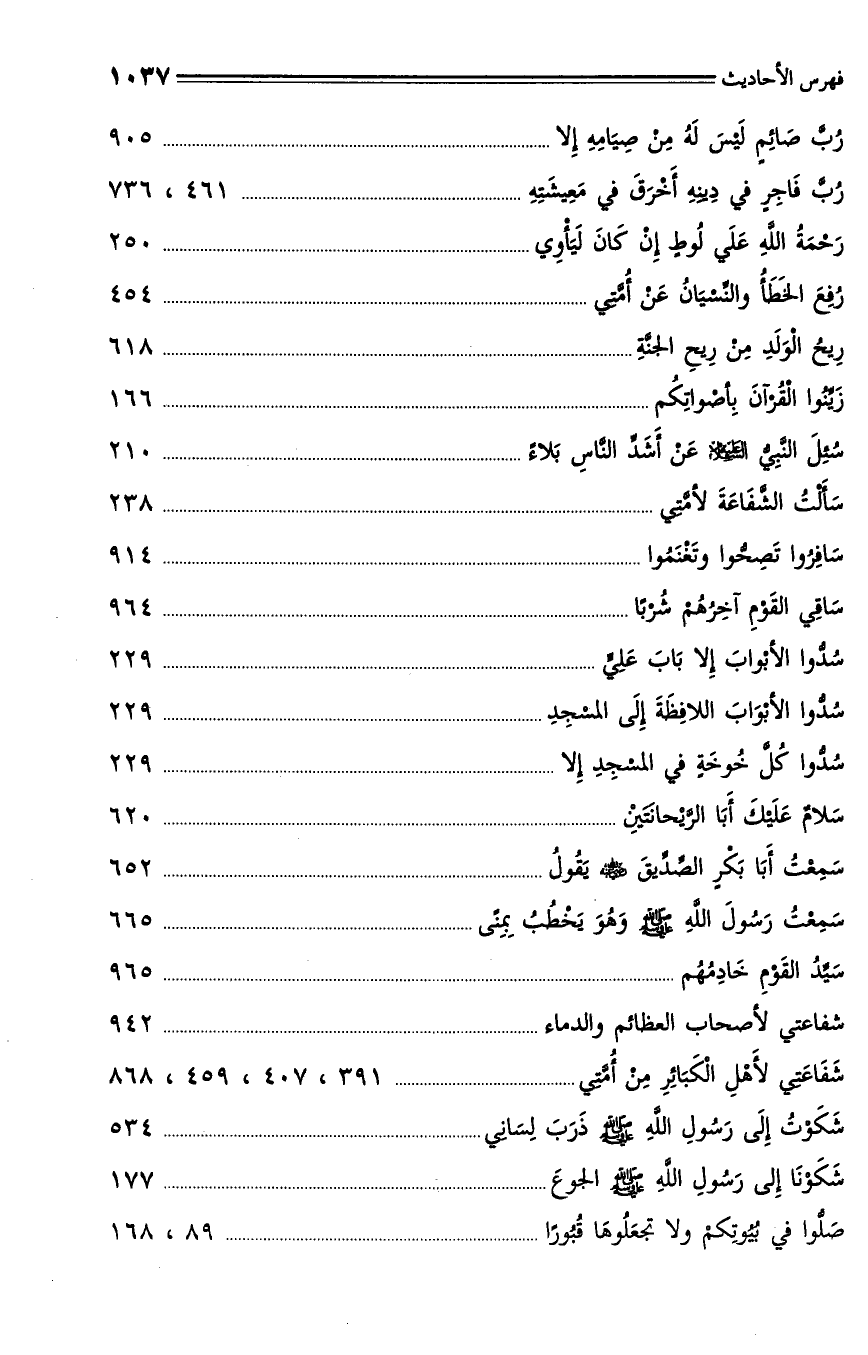 فهرس الأحاديث ١٠٣٧
رُبَّ صَائِمٍ لَيْسَ لَهُ مِنْ صِيَامِهِ إِلا ٩٠٥
رُبَّ فَاجِرٍ في دِينِهِ أَخْرَقَ في مَعِيشَتِهِ ٤٦١ ، ٧٣٦
رَحْمَةُ اللَّهِ عَلَي لُوطٍ إِنْ كَانَ لَيَأْوِي ٢٥٠
رُفِعَ الخَطَأُ والنِّسْيَانُ عَنْ أُمَّتِي ٤٥٤
رِيحُ الْوَلَدِ مِنْ رِيحِ الجنَّةِ ٦١٨
زَيِّنُوا الْقُرْآنَ بِأصْواتِكُم ١٦٦
سُئِلَ النَّبِيُّ عَنْ أَشَدِّ النَّاسِ بَلاءً ٢١٠
سَأَلْتُ الشَّفَاعَةَ لأمَّتِي ٢٣٨
سَافِرُوا تَصِحُّوا وتَغْنَمُوا ٩١٤
سَاقِي القَوْمِ آخِرُهُمْ شُرْبًا ٩٦٤
سُدُّوا الأبْوابَ إِلا بَابَ عَلِيٍّ ٢٢٩
سُدُّوا الأبْوَابَ اللافِظَةَ إِلَى المسْجِدِ ٢٢٩
سُدُّوا كُلَّ خُوخَةٍ في المسْجِدِ إِلا ٢٢٩
سَلامٌ عَلَيْكَ أَبَا الرَّيْحانَتَيْنِ ٦٢٠
سَمِعْتُ أَبَا بَكْرٍ الصِّدِّيقَ رضي الله عنه يَقُولُ ٦٥٢
سَمِعْتُ رَسُولَ اللَّهِ ﷺ وَهُوَ يَخْطُبُ بِمِنًى ٦٦٥
سَيِّدُ القَوْمِ خَادِمُهُم ٩٦٥
شفاعتي لأصحاب العظائم والدماء ٩٤٢
شَفَاعَتِي لأَهْلِ الْكَبَائِرِ مِنْ أُمَّتِي ٣٩١ ، ٤٠٧ ، ٤٥٩ ، ٨٦٨
شَكَوْتُ إِلَى رَسُولِ اللَّهِ ﷺ ذَرَبَ لِسَانِي ٥٣٤
شَكَوْنَا إِلى رَسُولِ اللَّهِ ﷺ الجوعَ ١٧٧
صَلُّوا في بُيُوتِكمْ ولا تجعَلُوهَا قُبُورًا ٨٩ ، ١٦٨